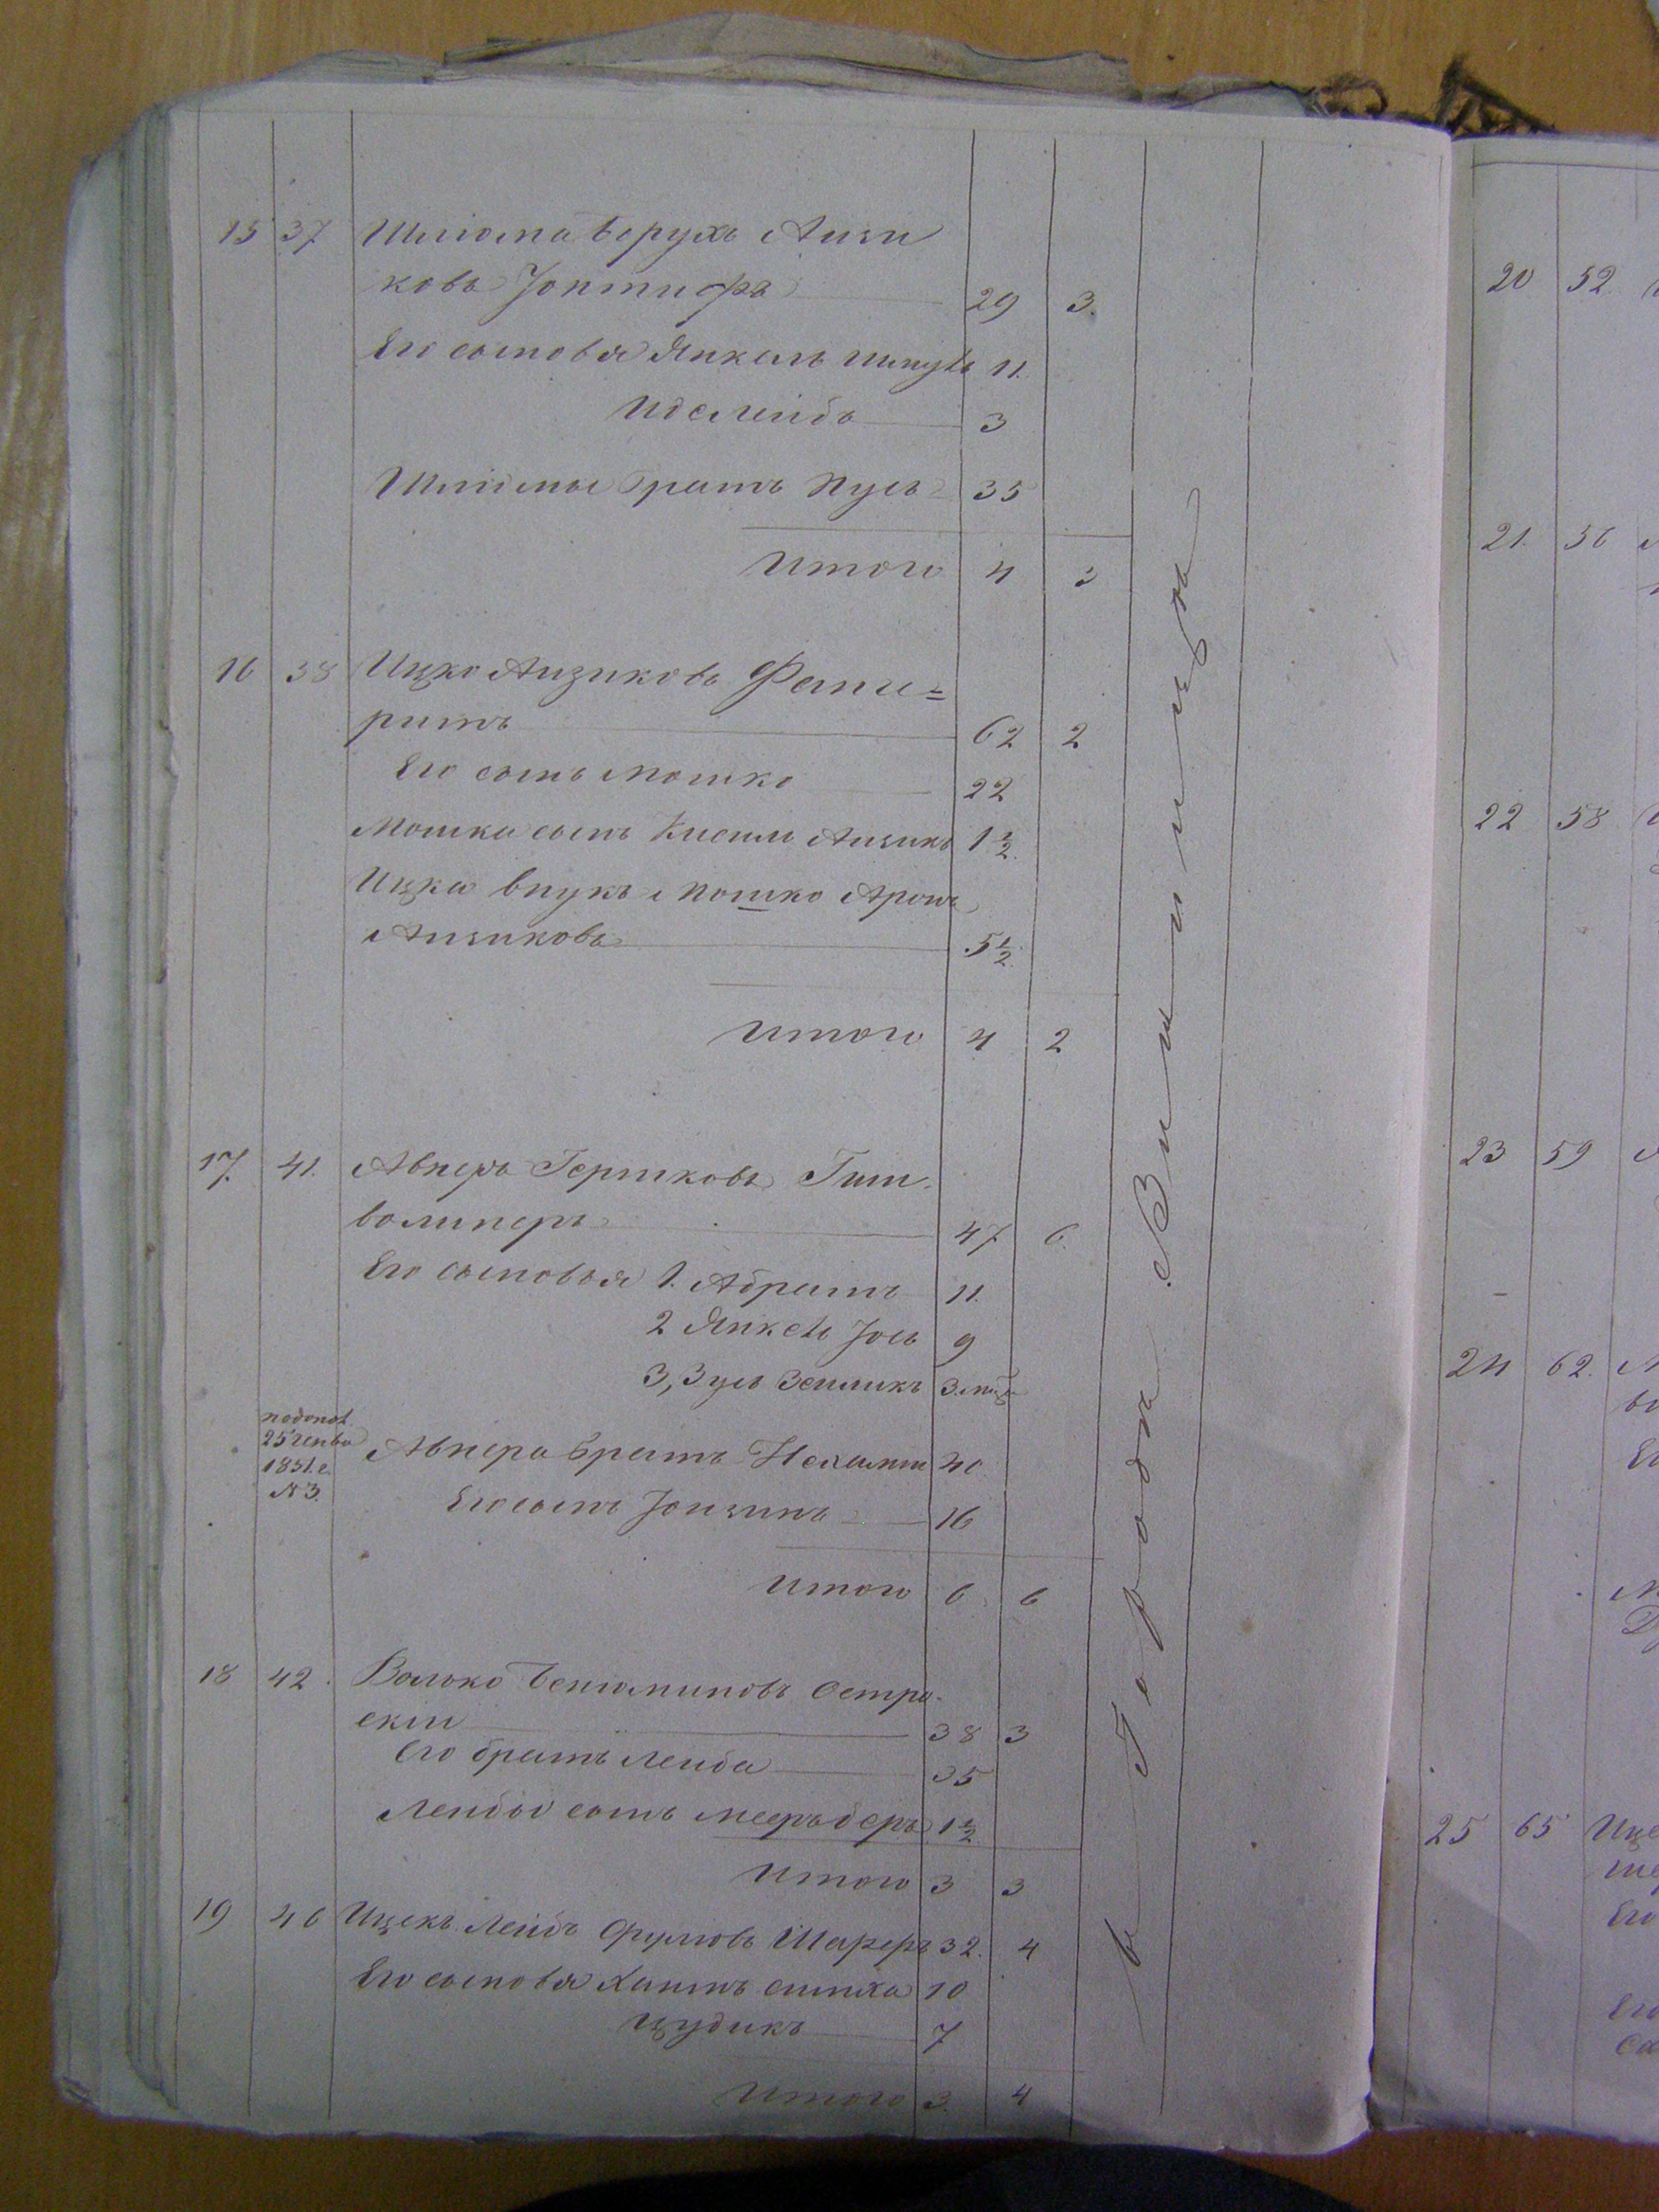 15 37 Шлiома Борухъ Аизи
ковъ Іонтифъ 29 3.
Его сыновья Янкель Шмуль 11.
Иос Лейбъ 3
Шлiомы братъ Нусъ 35
Итого 4 3
16 38 Ицко Аизиковъ Фели=
ритъ 62 2
Его сынъ Мошко 22
Мошка сынъ Кисиль Аизикъ 1½
Ицка внукъ Мошко Аронъ
Аизиковъ 5½
Итого 4 2
17. 41. Авнеръ Гершковъ Гит
волинеръ 47 6.
Его сыновья 1. Абрамъ 11.
2 Янкель Іось 9
3, Зусь Зелликъ 3 мѣс
25 генва
1851. г.
№ 3.
Авнера братъ Нехамъ 40
Его сынъ Іоизинъ 16
Итого 6 6
18 42. Волько Бенiоминовъ Остро
скiй 38 3
Его братъ Лейба 35
Лейбы сынъ Мееръ беръ 1½
Итого 3 3
19 46 Ицекъ Лейбъ Фулiовъ Шареръ 32. 4
Его сыновья Хаимъ Симха 10
Цудикъ 7
Итого 3. 4
въ Городѣ Винницѣ
20 52.
21. 36
22 58
23 59
24 62.
25 65 Ице
Его
Его